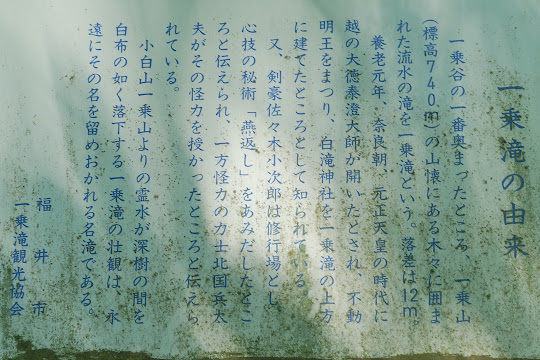 一乗滝の由来
一乗谷の一番奥まったところ、一乗山
(標高740.m)の山懐にある木々に囲ま
れた流水の滝を一乗滝という。落差は12m
養老元年、奈良朝、元正天皇の時代に
越の大徳泰澄大師が開いたとされ、不動
明王をまつり、白滝神社を一乗滝の上方
に建てたところとして知られている
又、剣豪佐々木小次郎は修行場とし
心技の秘術「燕返し」をあみだしたとこ
ろと伝えられ、一方怪力の力士北国兵太
夫がその怪力を授かったところと伝えら
れている。
小白山一乗山よりの霊水が深樹の間を
白布の如く落下する一乗滝の壮観は、永
遠にその名を留めおかれる名滝である。
福井市
一乗滝観光協会